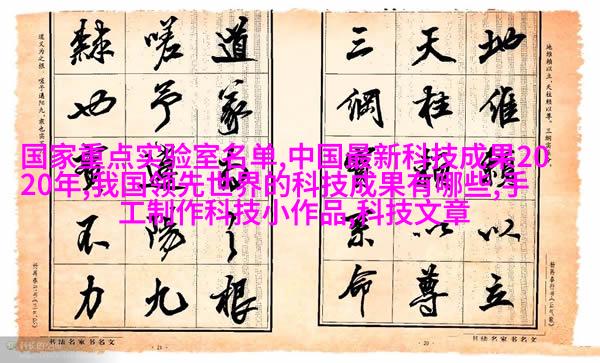 国家重点实验室名单,中国最新科技成果20
20年,我国领先世界的科技成果有哪些,手
工制作科技小作品,科技文章
地維賴以立
天柱賴以尊
三綱實系命
道義為之根
嗟予遘陽九
隸也實不力
·20·
·21·